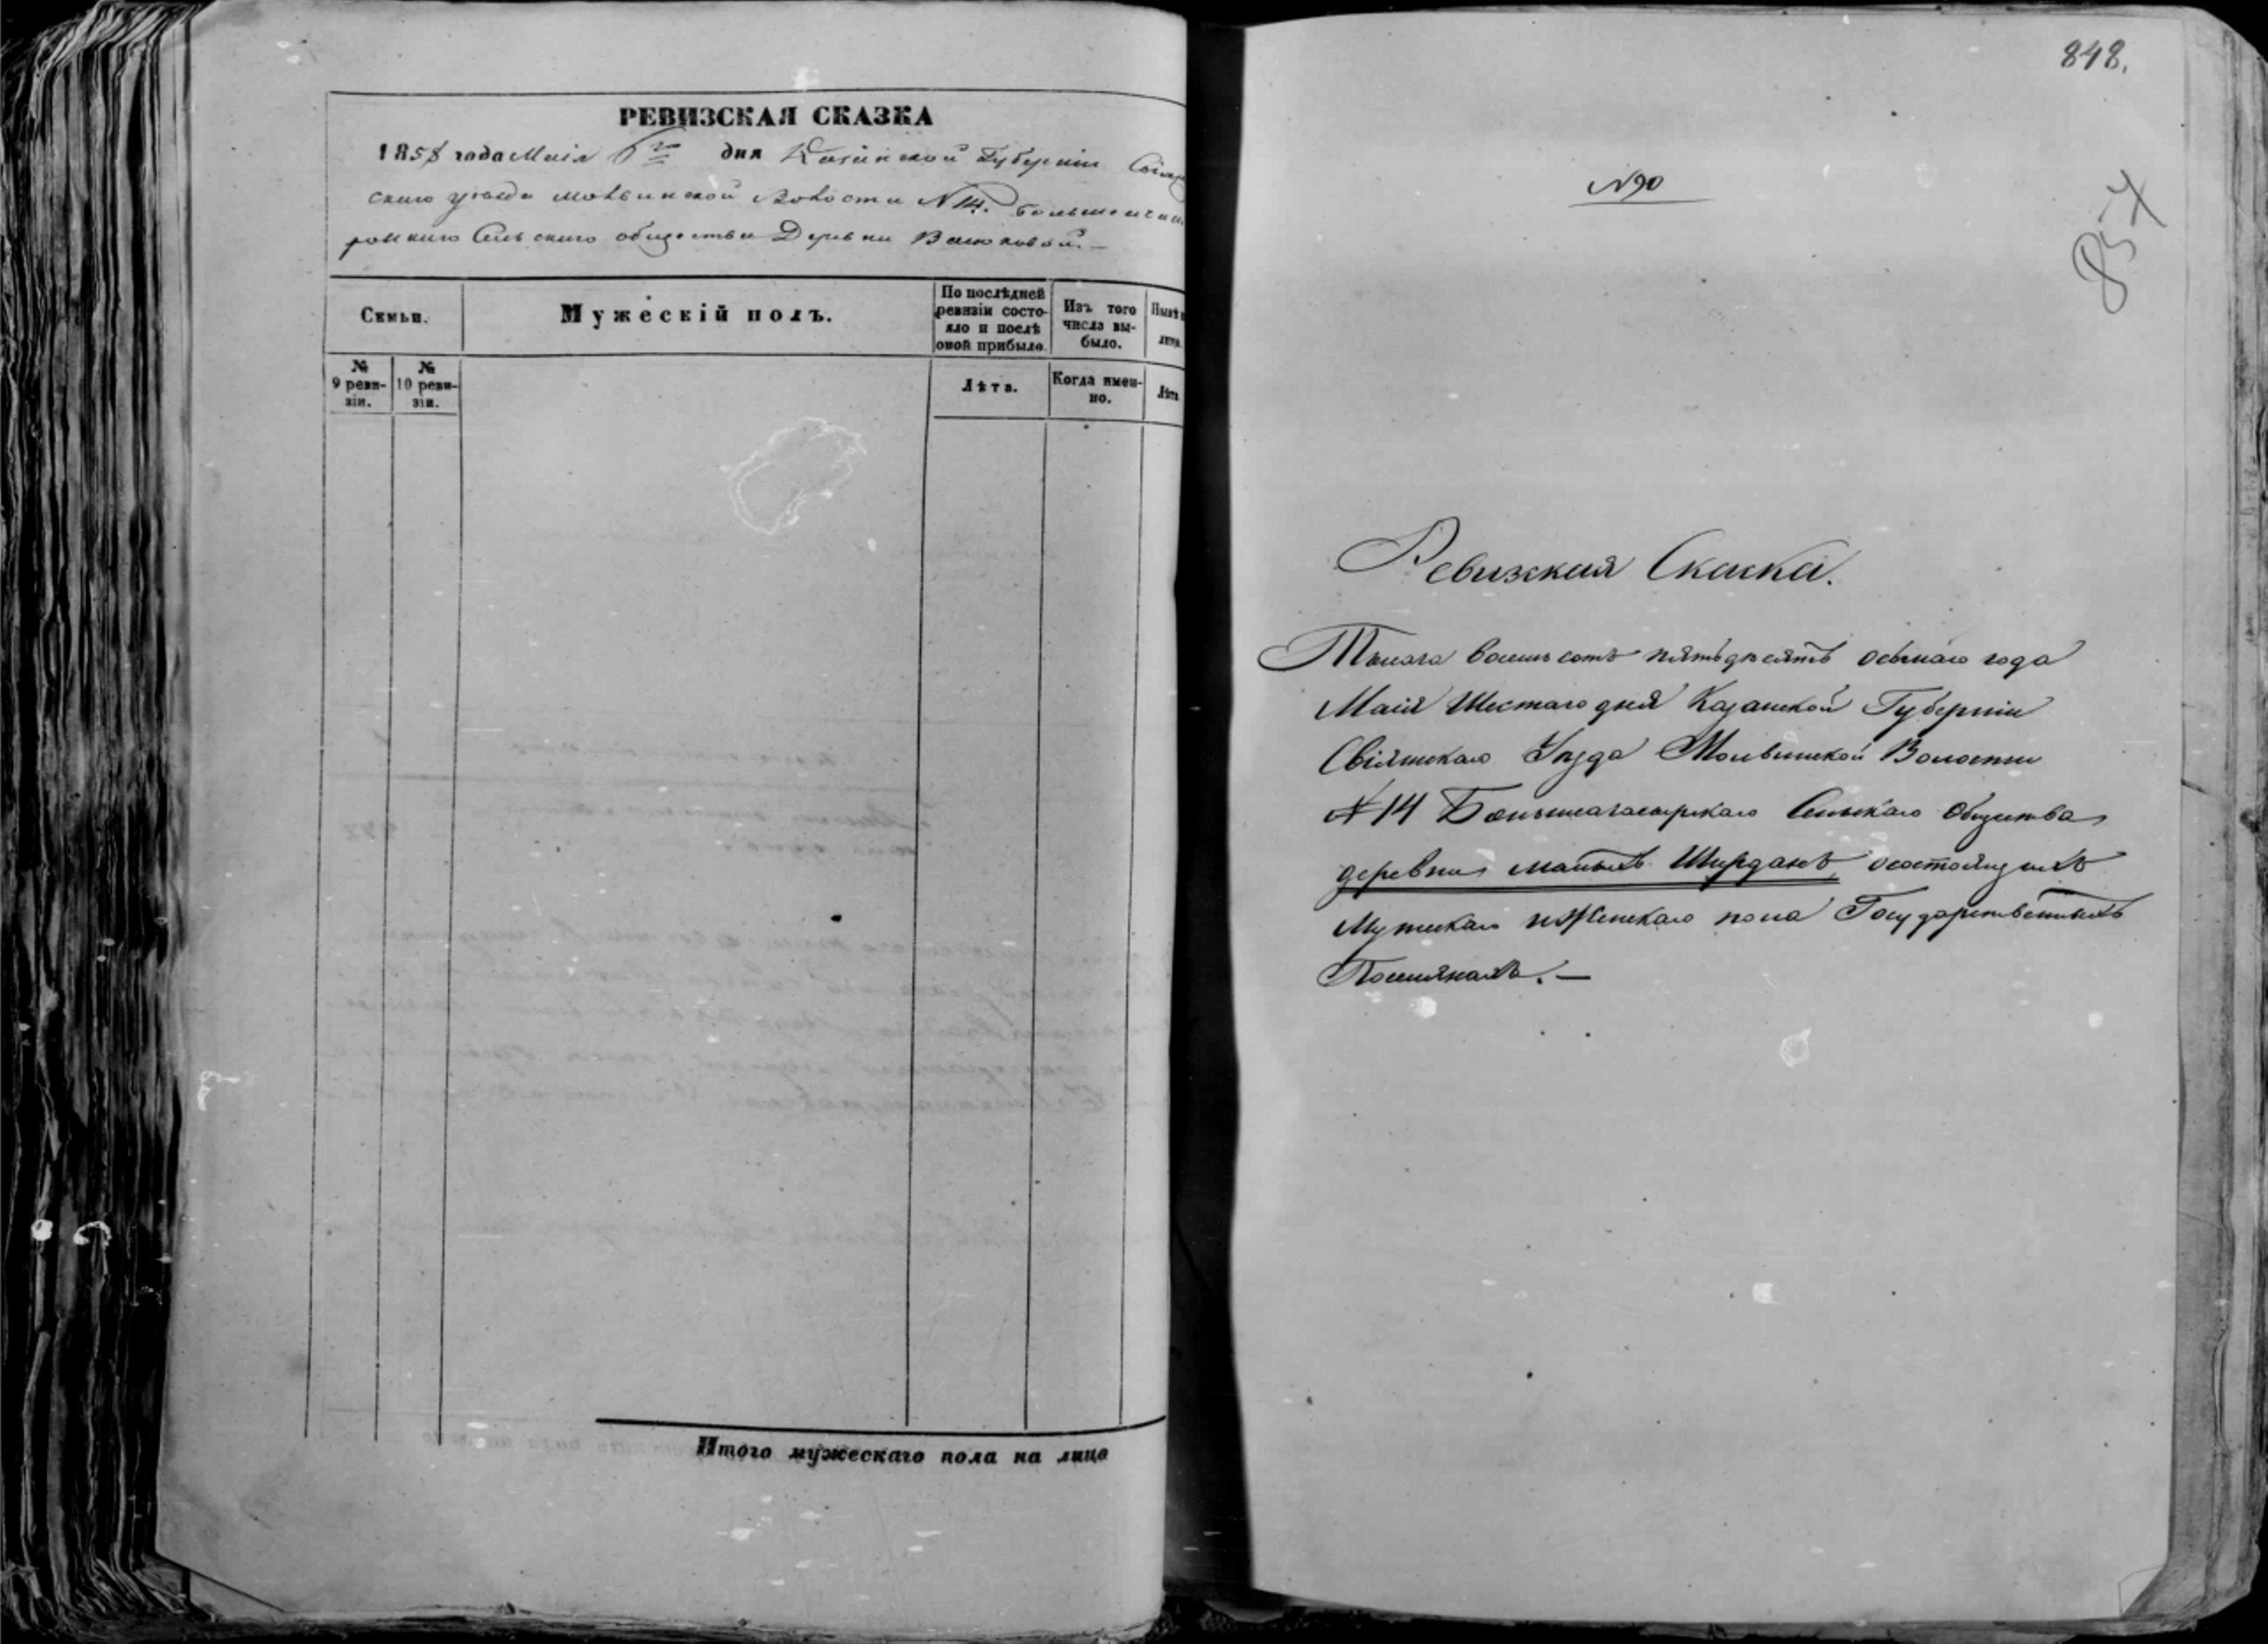 РЕВИЗСКАЯ СКАЗКА
1858 года Маія 6го дня Казанской Губерніи Свіяж
скаго уезда Молвинской Волости N 14. Большеачас
ырскаго Сельскаго общества Деревни
Семьи.
Мужескій полъ.
По послѣдней ревизіи состо-
яло и послѣ оной прибыло.
Изъ того числа вы-
было.
Нынѣ
лицо.
№ 9 реви-
зіи.
№ 10 реви-
зіи.
Лѣта.
Когда имен-
но.
Лѣта
Итого мужескаго пола на лицо
848.
N90
857
Ревизская Сказка.
Тысяча восемь сотъ пятьдесятъ осьмаго года
Маія Шестаго дня Казанской Губерніи
Свіяжскаго Уезда Молвинской Волости
N 14 Большеачасырскаго Сельскаго Общества
деревни малыхъ Ширданъ, о состоящихъ
Мужскаго и Женскаго пола Государственныхъ
Поселянахъ. —